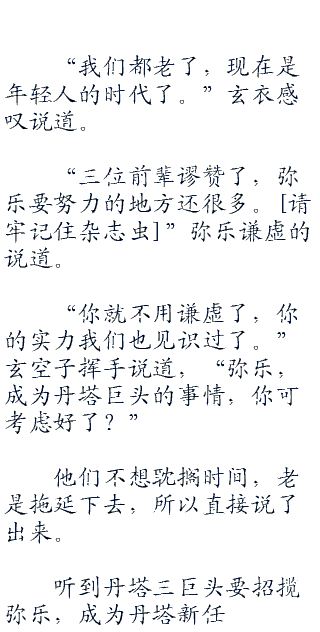 “我们都老了，现在是
年轻人的时代了。”玄衣感
叹说道。
“三位前辈谬赞了，弥
乐要努力的地方还很多。[请
牢记住杂志虫]”弥乐谦虚的
说道。
“你就不用谦虚了，你
的实力我们也见识过了。”
玄空子挥手说道，“弥乐，
成为丹塔巨头的事情，你可
考虑好了？”
他们不想耽搁时间，老
是拖延下去，所以直接说了
出来。
听到丹塔三巨头要招揽
弥乐，成为丹塔新任